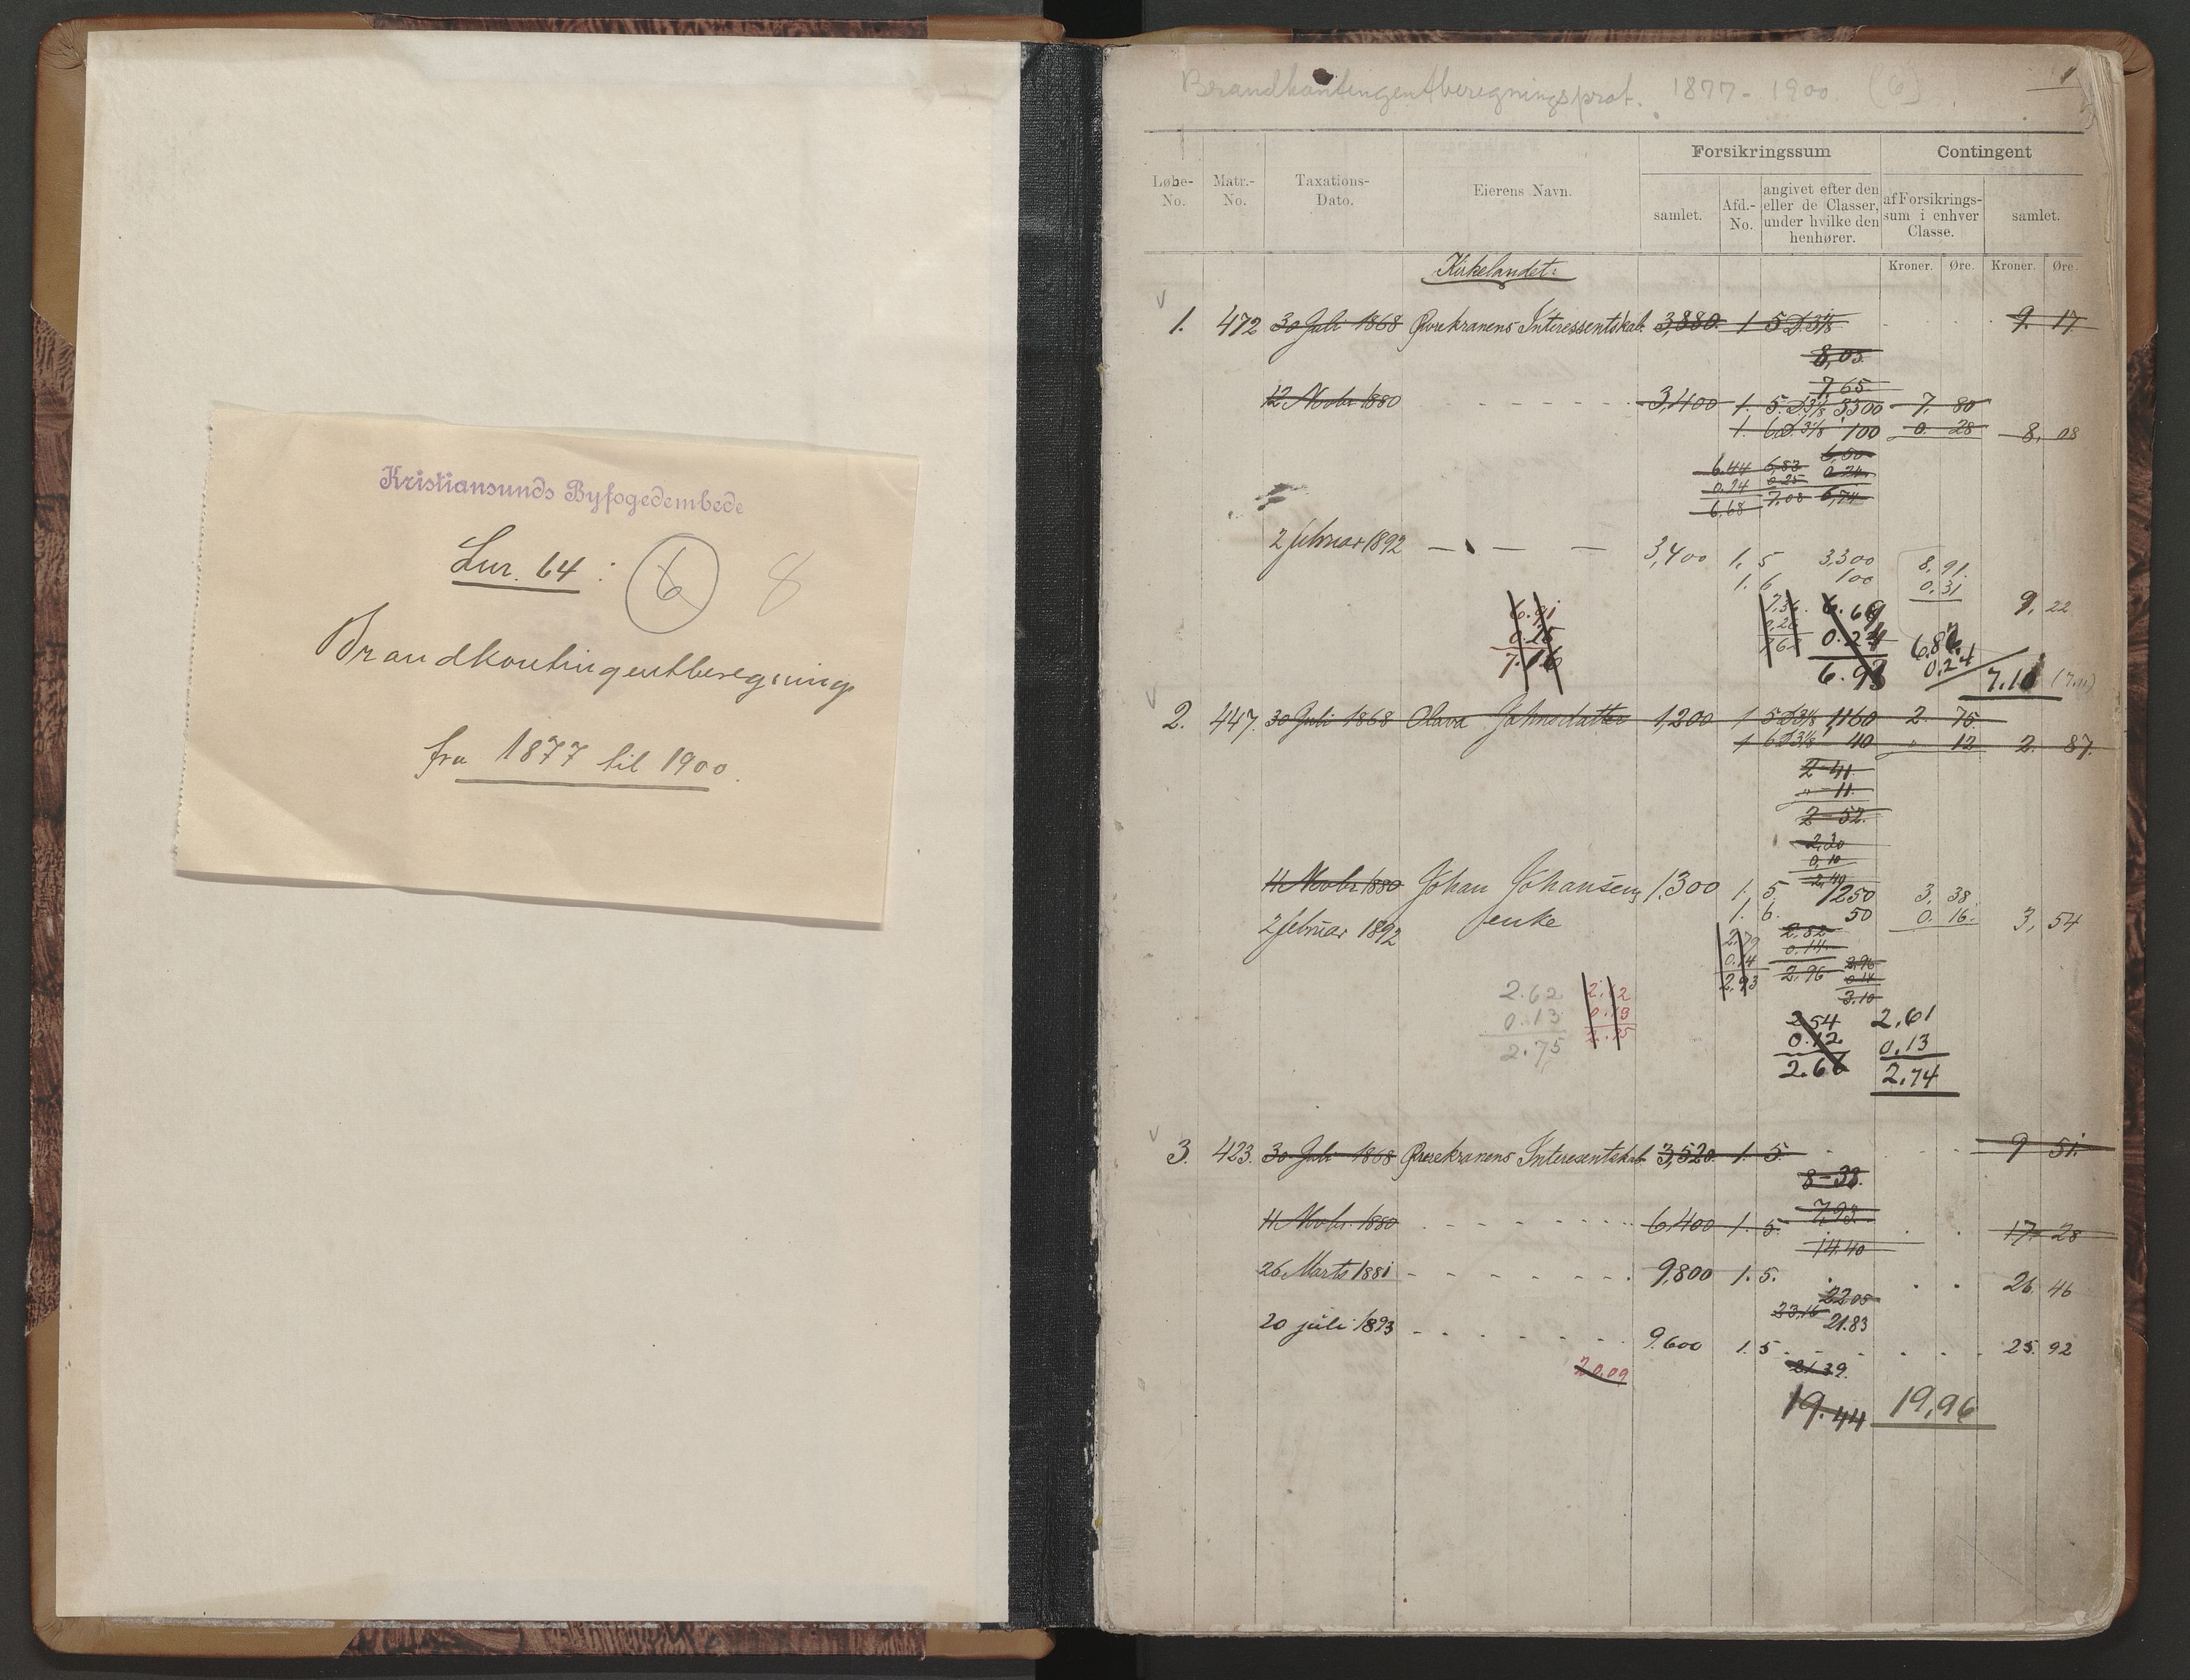 Kristiansunds Byfogedembede
Lnr. 64 : 6 8
Brandkontingentberegning
fra 1877 til 1900.
Brandkontingentberegningsprot. 1877 - 1900. (6)
1
Forsikringssum Contingent
Løbe-No. Matr.-No. Taxations-Dato. Eierens Navn. samlet. Afd.-No. angivet efter den eller de Classer, under hvilke den henhører. af Forsikrings-sum i enhver Classe. samlet.
Kroner. Øre. Kroner. Øre.
Kirkelandet:
1. 472 30 Juli 1868 Ørekranens Interessentskab. 3,880. 1 5 D 3 1/8 9. 17
8,05.
7,65.
12 Novbr 1880 - - - - - - 3,400 1. 5. D 3 1/8 3300 7. 80
1. 6 D. 3 1/8 100 0. 28 8. 08
6,44 6,83 6,50
0,24 0,25 0,24
6,68 7,08 6,74
2 februar 1892 — — — 3,400 1. 5 3,300 8,91.
1. 6. 100 0,31
9. 22
6.91 7,36 6.69
0.25 0,26 0.24 6.87
7.16 7,62 6.93 0.24
7.11 (7.11)
2. 447. 30 Juli 1868 Olava Johnsdatter 1,200 1 5 D 3 1/8 1160 2. 75.
1 6 D 3 1/8 40 " 12 2. 87.
2 - 41.
" - 11.
2 - 52.
2,30
0,10
2,40
11 Novbr 1880 Johan Johansens 1,300 1. 5. 1250 3. 38.
enke 1. 6. 50 0. 16. 3, 54
2 februar 1892
2,79 2,82
0.14 0,14 2,96
2,93 2,96 0.14
3.10
2.62 2.62
0.13 0.13
2.75 2.75
2.54 2.61
0.12 0.13
2.66 2.74
3. 423. 30 Juli 1868 Ørekranens Interesentskab 3,520. 1. 5. 9 51.
8 - 38.
7,93.
11 Novbr. 1880 - - - - - - 6,400 1. 5. 17 - 28
14.40
26 Marts 1881 - - - - - - 9,800 1. 5. 26. 46
22 05
23,16 21.83
20 juli 1893 - - - - - - 9.600 1. 5. 25. 92
20.09 21.39.
19.44 19,96